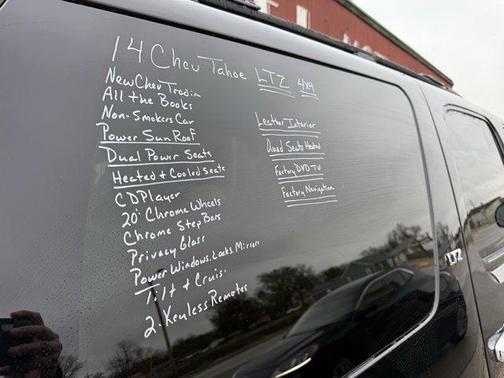 14 Chev Tahoe LTZ 4x4
New Chev Tradin
All the Books
Non-Smokers Car
Power Sun Roof
Dual Power Seats
Heated & Cooled Seats
CD Player
20" Chrome Wheels
Chrome Step Bars
Privacy Glass
Power Windows. Locks. Mirrors
Tilt & Cruis.
2. Keyless Remotes
Leather Interior
Quad Seats Heated
Factory DVD TV
Factory Navigation
LTZ